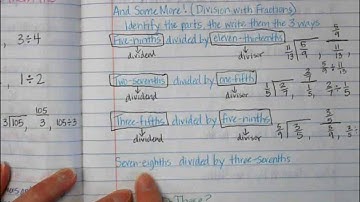 And Some More! (Division with Fractions)
Identify the parts, the write them the 3 ways
Five-ninths divided by eleven-thirteenths
dividend divisor
11/13 5/9 , 5/9 ÷ 11/13
5/9
11/13
Two-sevenths divided by one-fifth
dividend divisor
1/5 2/7 , 2/7 , 2/7 ÷ 1/5
1/5
Three-fifths divided by five-ninths
dividend divisor
5/9 3/5 , 3/5
5/9
Seven-eighths divided by three-sevenths
, 3÷4
, 1÷2
3 105 , 105 , 105÷3
3